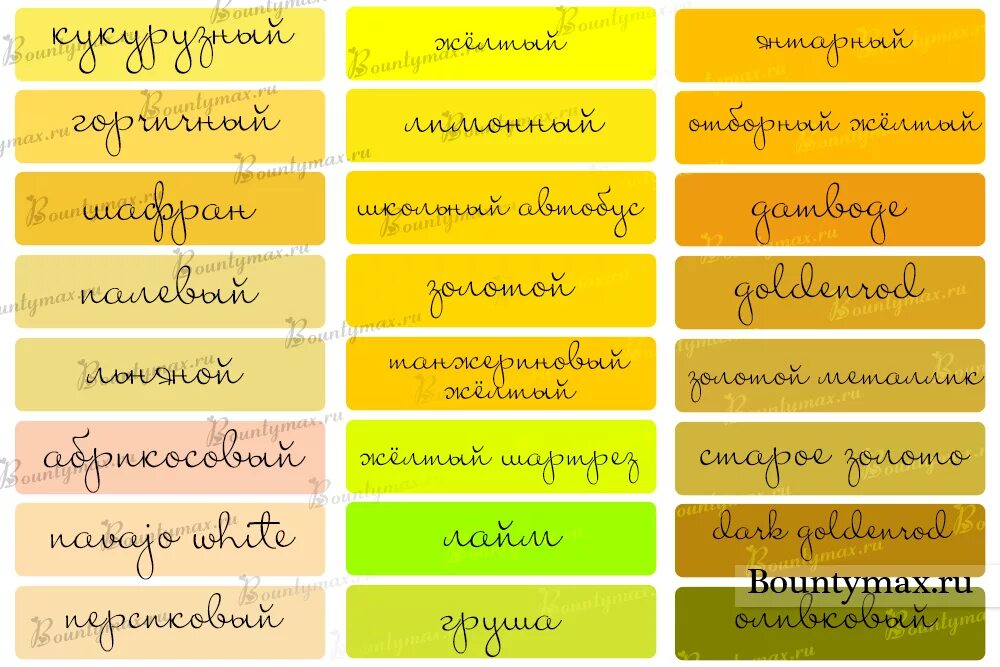 кукурузный
жёлтый
янтарный
горчичный
лимонный
отборный жёлтый
шафран
школьный автобус
gamboge
палевый
золотой
goldenrod
льняной
танжериновый
жёлтый
золотой металлик
абрикосовый
жёлтый шартрез
старое золото
navajo white
лайм
dark goldenrod
персиковый
груша
оливковый
Bountymax.ru